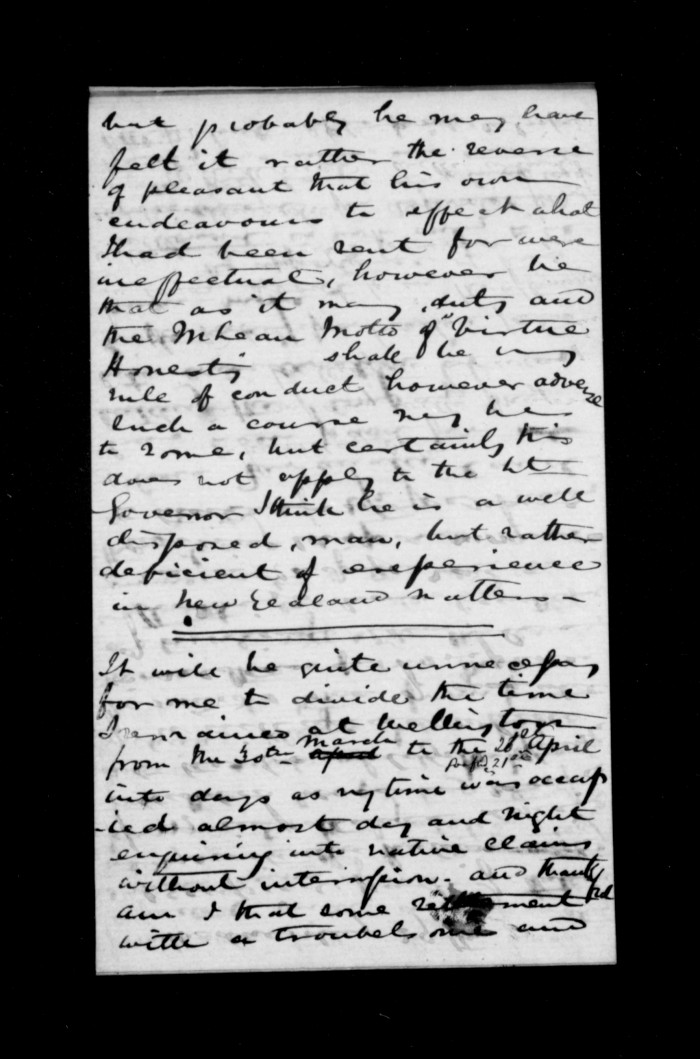 but probably he may have
felt it rather the reverse
of pleasant that his own
endeavours to effect what
I had been sent for were
ineffectual, however be
that as it may, duty and
the McLean Motto of "Virtue
Honesty shall be my
rule of conduct however adverse
such a course may be
to some, but certainly this
does not apply to the Lt
Governor I think he is a well
disposed, man, but rather
deficient of experience
in New Zealand matters —
It will be quite unnecessary
for me to divide the time
I remained at Wellington
from the 30th march april to the 20 April
21st
into days as my time was occup
-ied almost day and night
enquiring into native claims
without intermission. and thankful
am I that some settlement
with a troublesome and